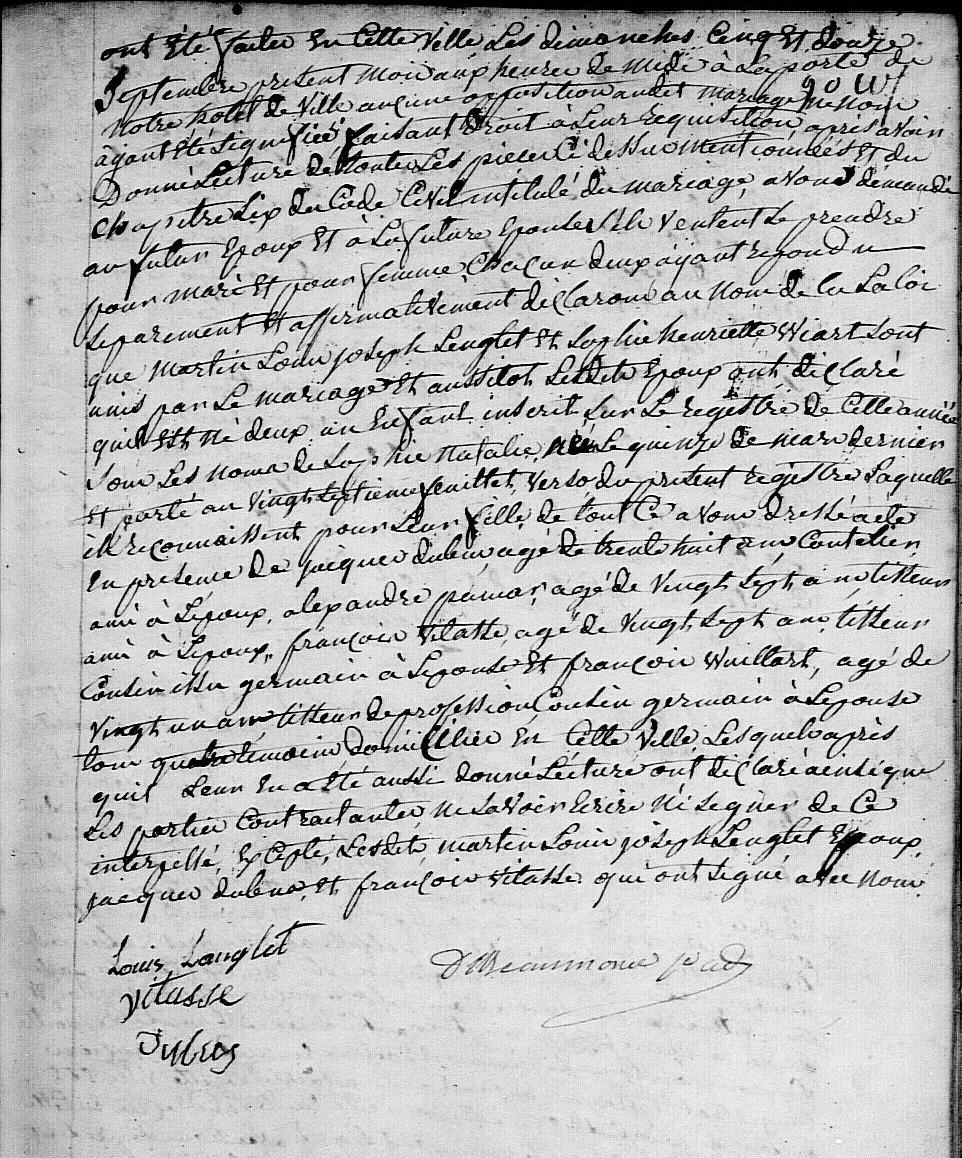 ont été faites en cette ville les dimanches cinq et douze
Septembre present mois aux heures de midi à la porte de
notre hotel de Ville aucune opposition audit mariage ne nous
ayant été signifiée faisant droit à leur requisition, après avoir
Donné Lecture de toutes les pieces ci dessus mentionnées et du
chapitre six du Code Civil intitulé du mariage, avons demandé
au futur Epoux et à la future Epouse s'ils veulent se prendre
pour mari et pour femme chacun d'eux ayant repondu
separement et affirmativement déclarons au nom de la Loi
que Martin Louis joseph Lenglet et Sophie henriette Wiart sont
unis par le mariage et aussitot lesdits Epoux ont déclaré
quil est né deux un Enfant inscrit sur le registre de cette année
sous les noms de Sophie Natalie, née le quinze de mars dernier
et porté au vingt septieme feuillet verso du present registre laquelle
ils reconnaissent pour leur fille, de tout ce avons dressé acte
en presence de jacques dubus agé de trente huit ans Coutelier,
ami à l'epoux, alexandre agé de vingt sept ans, titteur
ami à l'epoux, françois Vitasse, agé de vingt sept ans, titteur
Cousin issu germain à l'epouse et françois Wuillart, agé de
vingt un ans titteur de profession Cousin germain à l'epouse
tous quatre temoins domicilliés en cette ville, lesquels après
quil leur en a été aussi donné lecture ont déclaré ainsi que
les parties contractantes ne savoir écrire ni signer de ce
interpellé, excepté, lesdits martin Louis joseph Lenglet Epoux,
jacques dubus, et françois Vitasse qui ont signé avec nous
90 W
Louis Langlet
Vitasse
Dubus